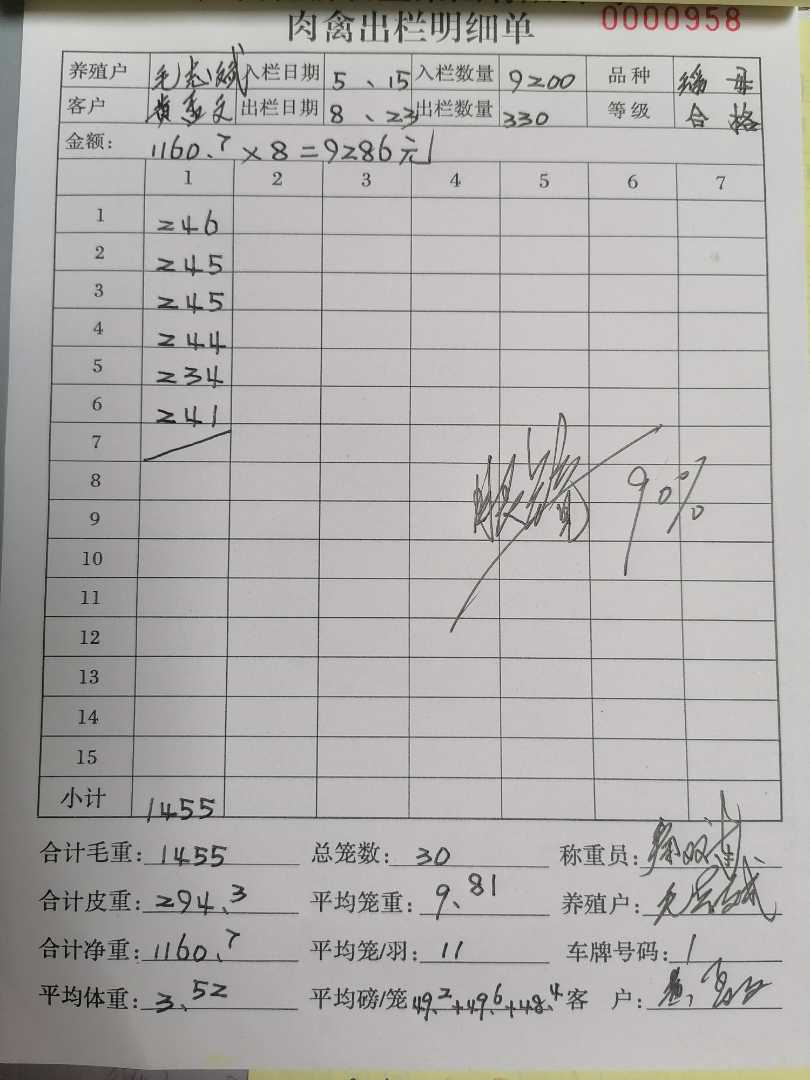 肉禽出栏明细单 0000958
养殖户 毛志斌 入栏日期 5、15 入栏数量 9200 品种
客户 出栏日期 8、23 出栏数量 330 等级 合格
金额: 1160.7×8=9286元
1 2 3 4 5 6 7
1 246
2 245
3 245
4 244
5 234
6 241
7
8
9 90%
10
11
12
13
14
15
小计 1455
合计毛重: 1455 总笼数: 30 称重员:
合计皮重: 294.3 平均笼重: 9.81 养殖户:
合计净重: 1160.7 平均笼/羽: 11 车牌号码: 1
平均体重: 3.52 平均磅/笼 49.2+49.6+48.4 客 户: